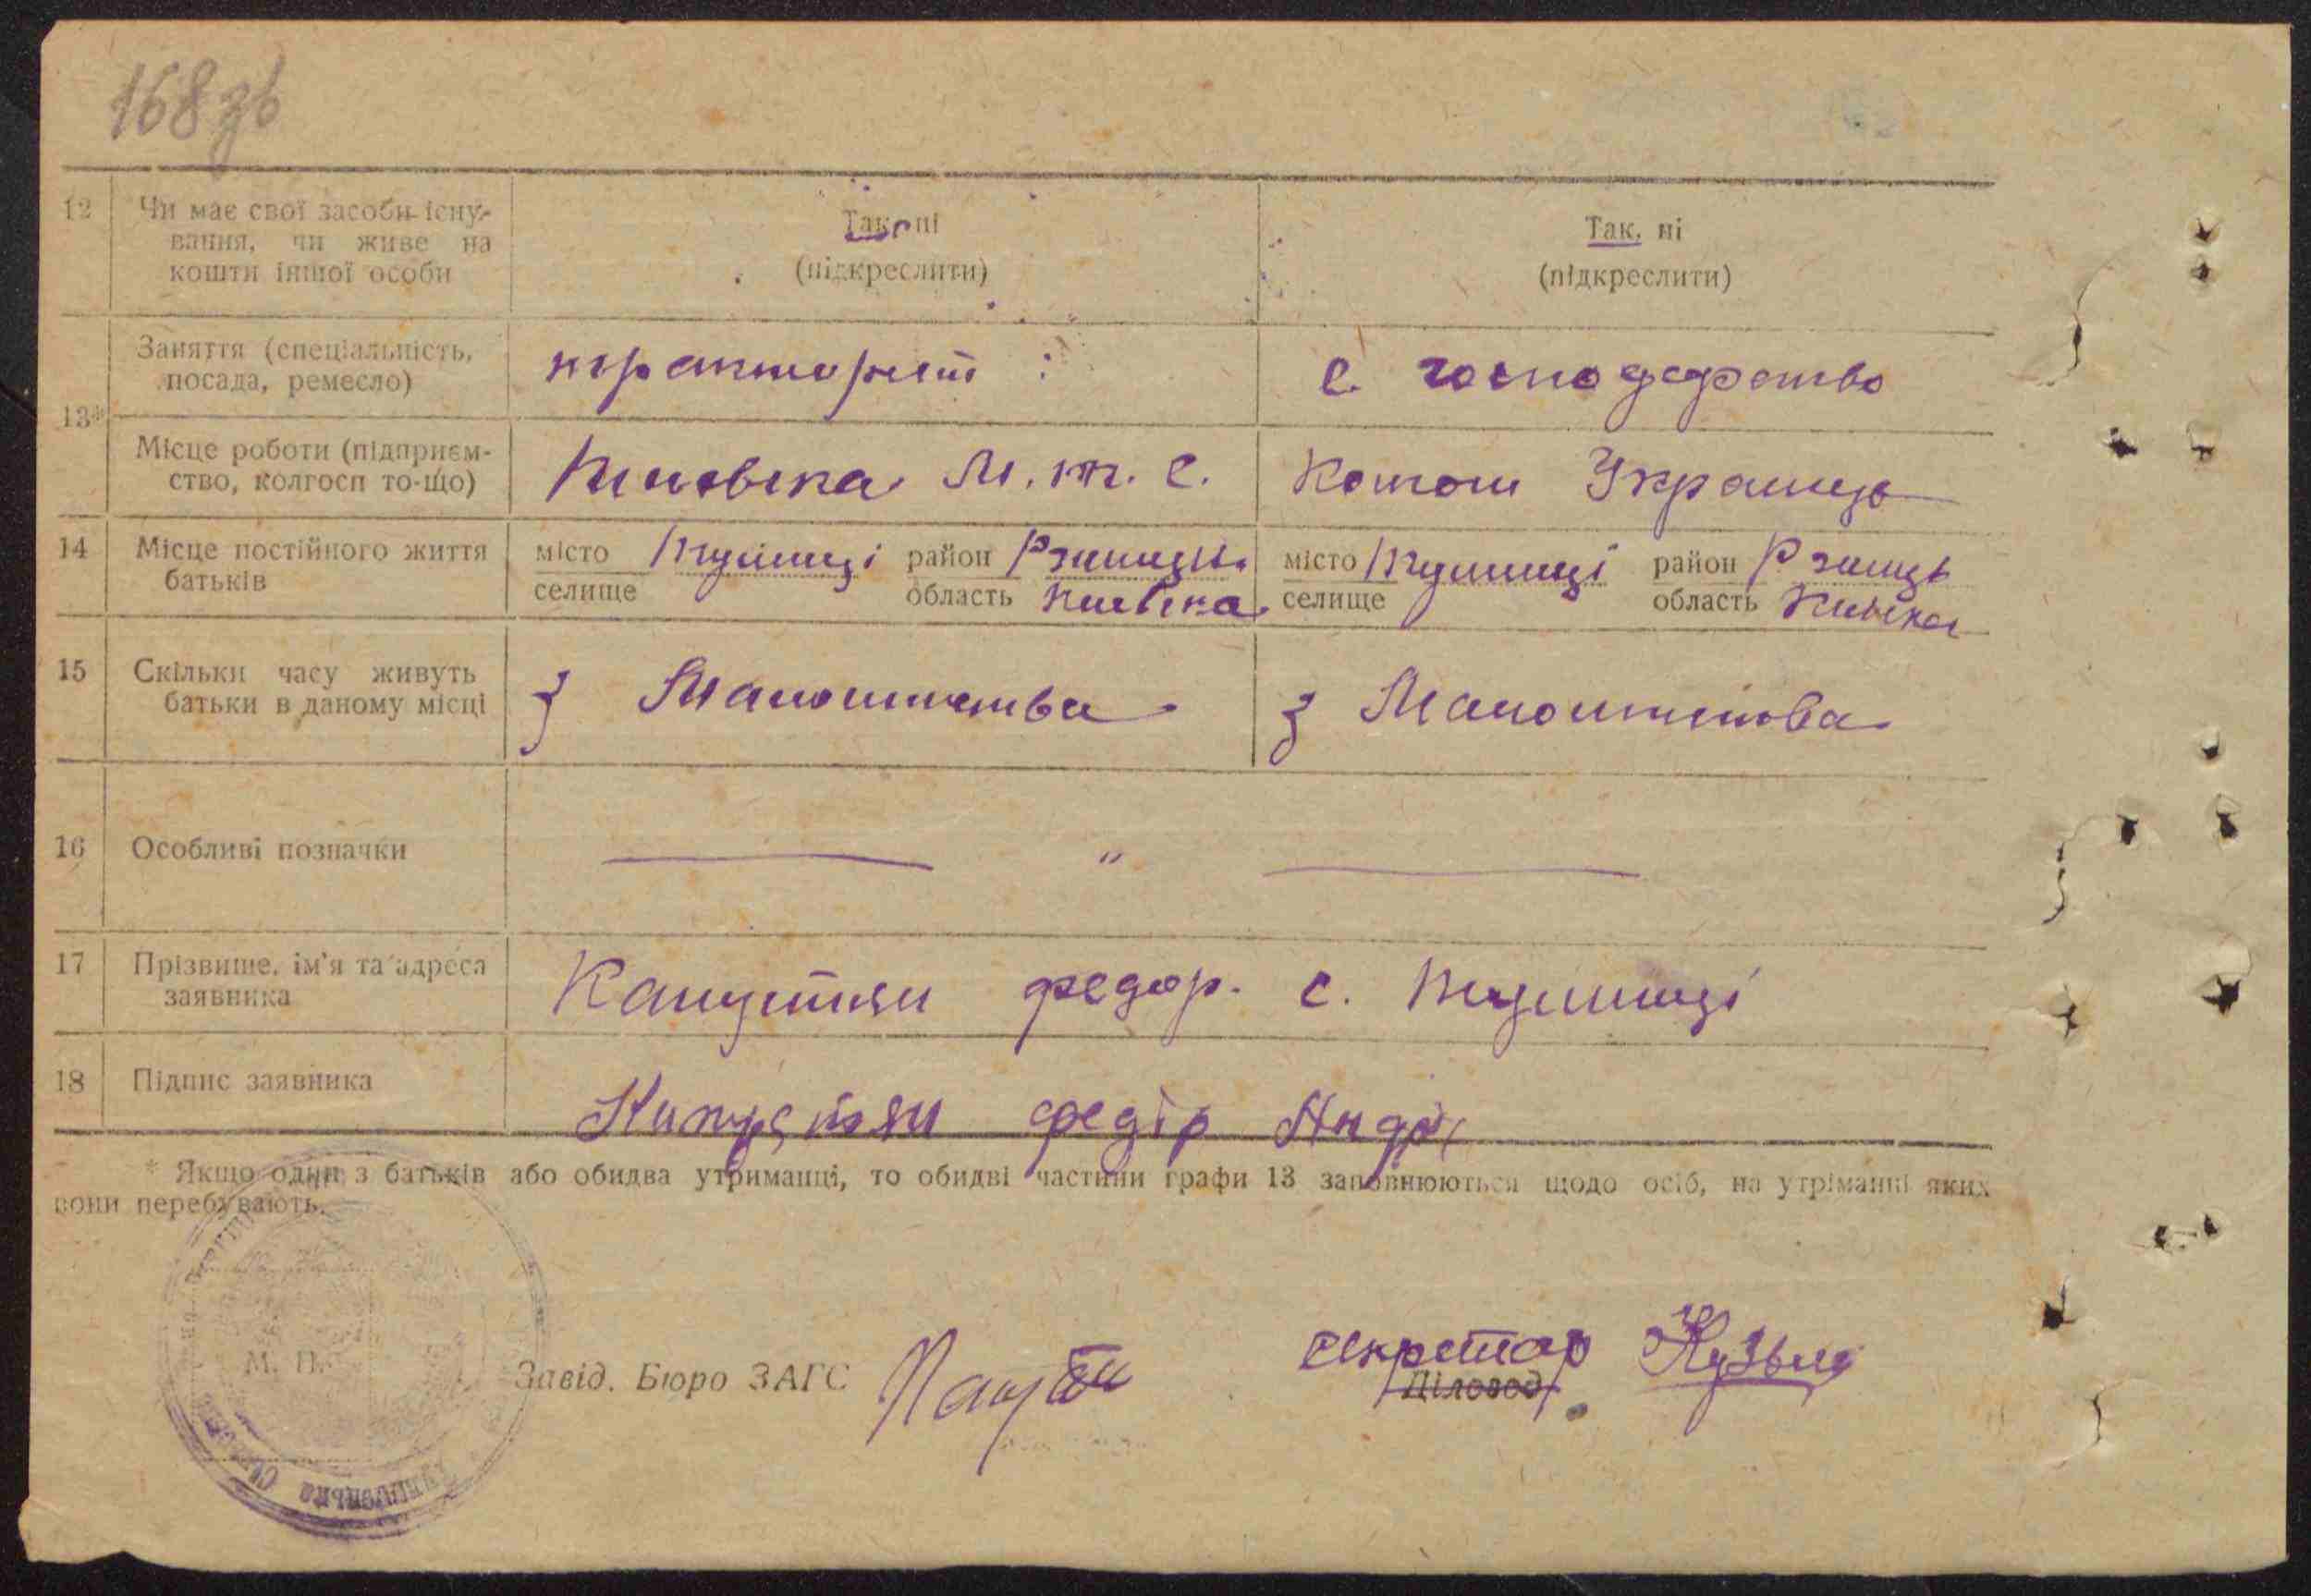 168 зв
12 Чи має свої засоби існу- Так, ні Так, ні
вання, чи живе на
кошти іншої особи (підкреслити) (підкреслити)
Заняття (спеціальність, тракторист с. господарство
посада, ремесло)
13*
Місце роботи (підприєм- М. т. С.
ство, колгосп то-що)
14 Місце постійного життя місто район місто район
батьків селище область Київська селище область Київська
15 Скільки часу живуть з Малолітства з Малолітства
батьки в даному місці
16 Особливі позначки — " —
17 Прізвище, ім'я та адреса Капустян федор. с.
заявника
18 Підпис заявника Капустян федір Андр
* Якщо один з батьків або обидва утриманці, то обидві частини графи 13 заповнюються щодо осіб, на утріманні яких
вони перебувають.
М. П.
Завід. Бюро ЗАГС
секретар
Діловод